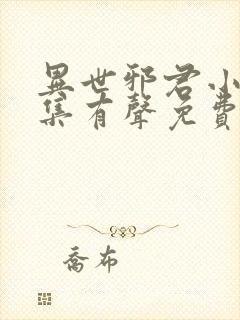 異世邪君小
集有聲免費
喬布